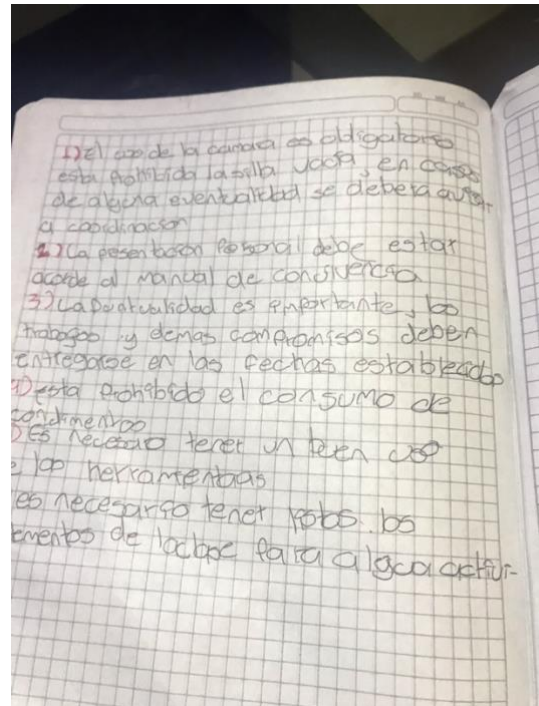 1) El uso de la camara es obligatorio
esta prohibida la silla vacia, en casos
de alguna eventualidad se debera avisar
a coordinacion
2) La pesentacion Personal debe estar
acorde al manual de convivencia
3) La Puntualidad es importante, los
trabajos y demas compromisos deben
entregarse en las fechas establecidas
4) esta prohibido el consumo de
condimentos
) Es necesario tener un buen uso
e las herramentas
es necesario tener listos los
ementos de laclase Para algua activi-